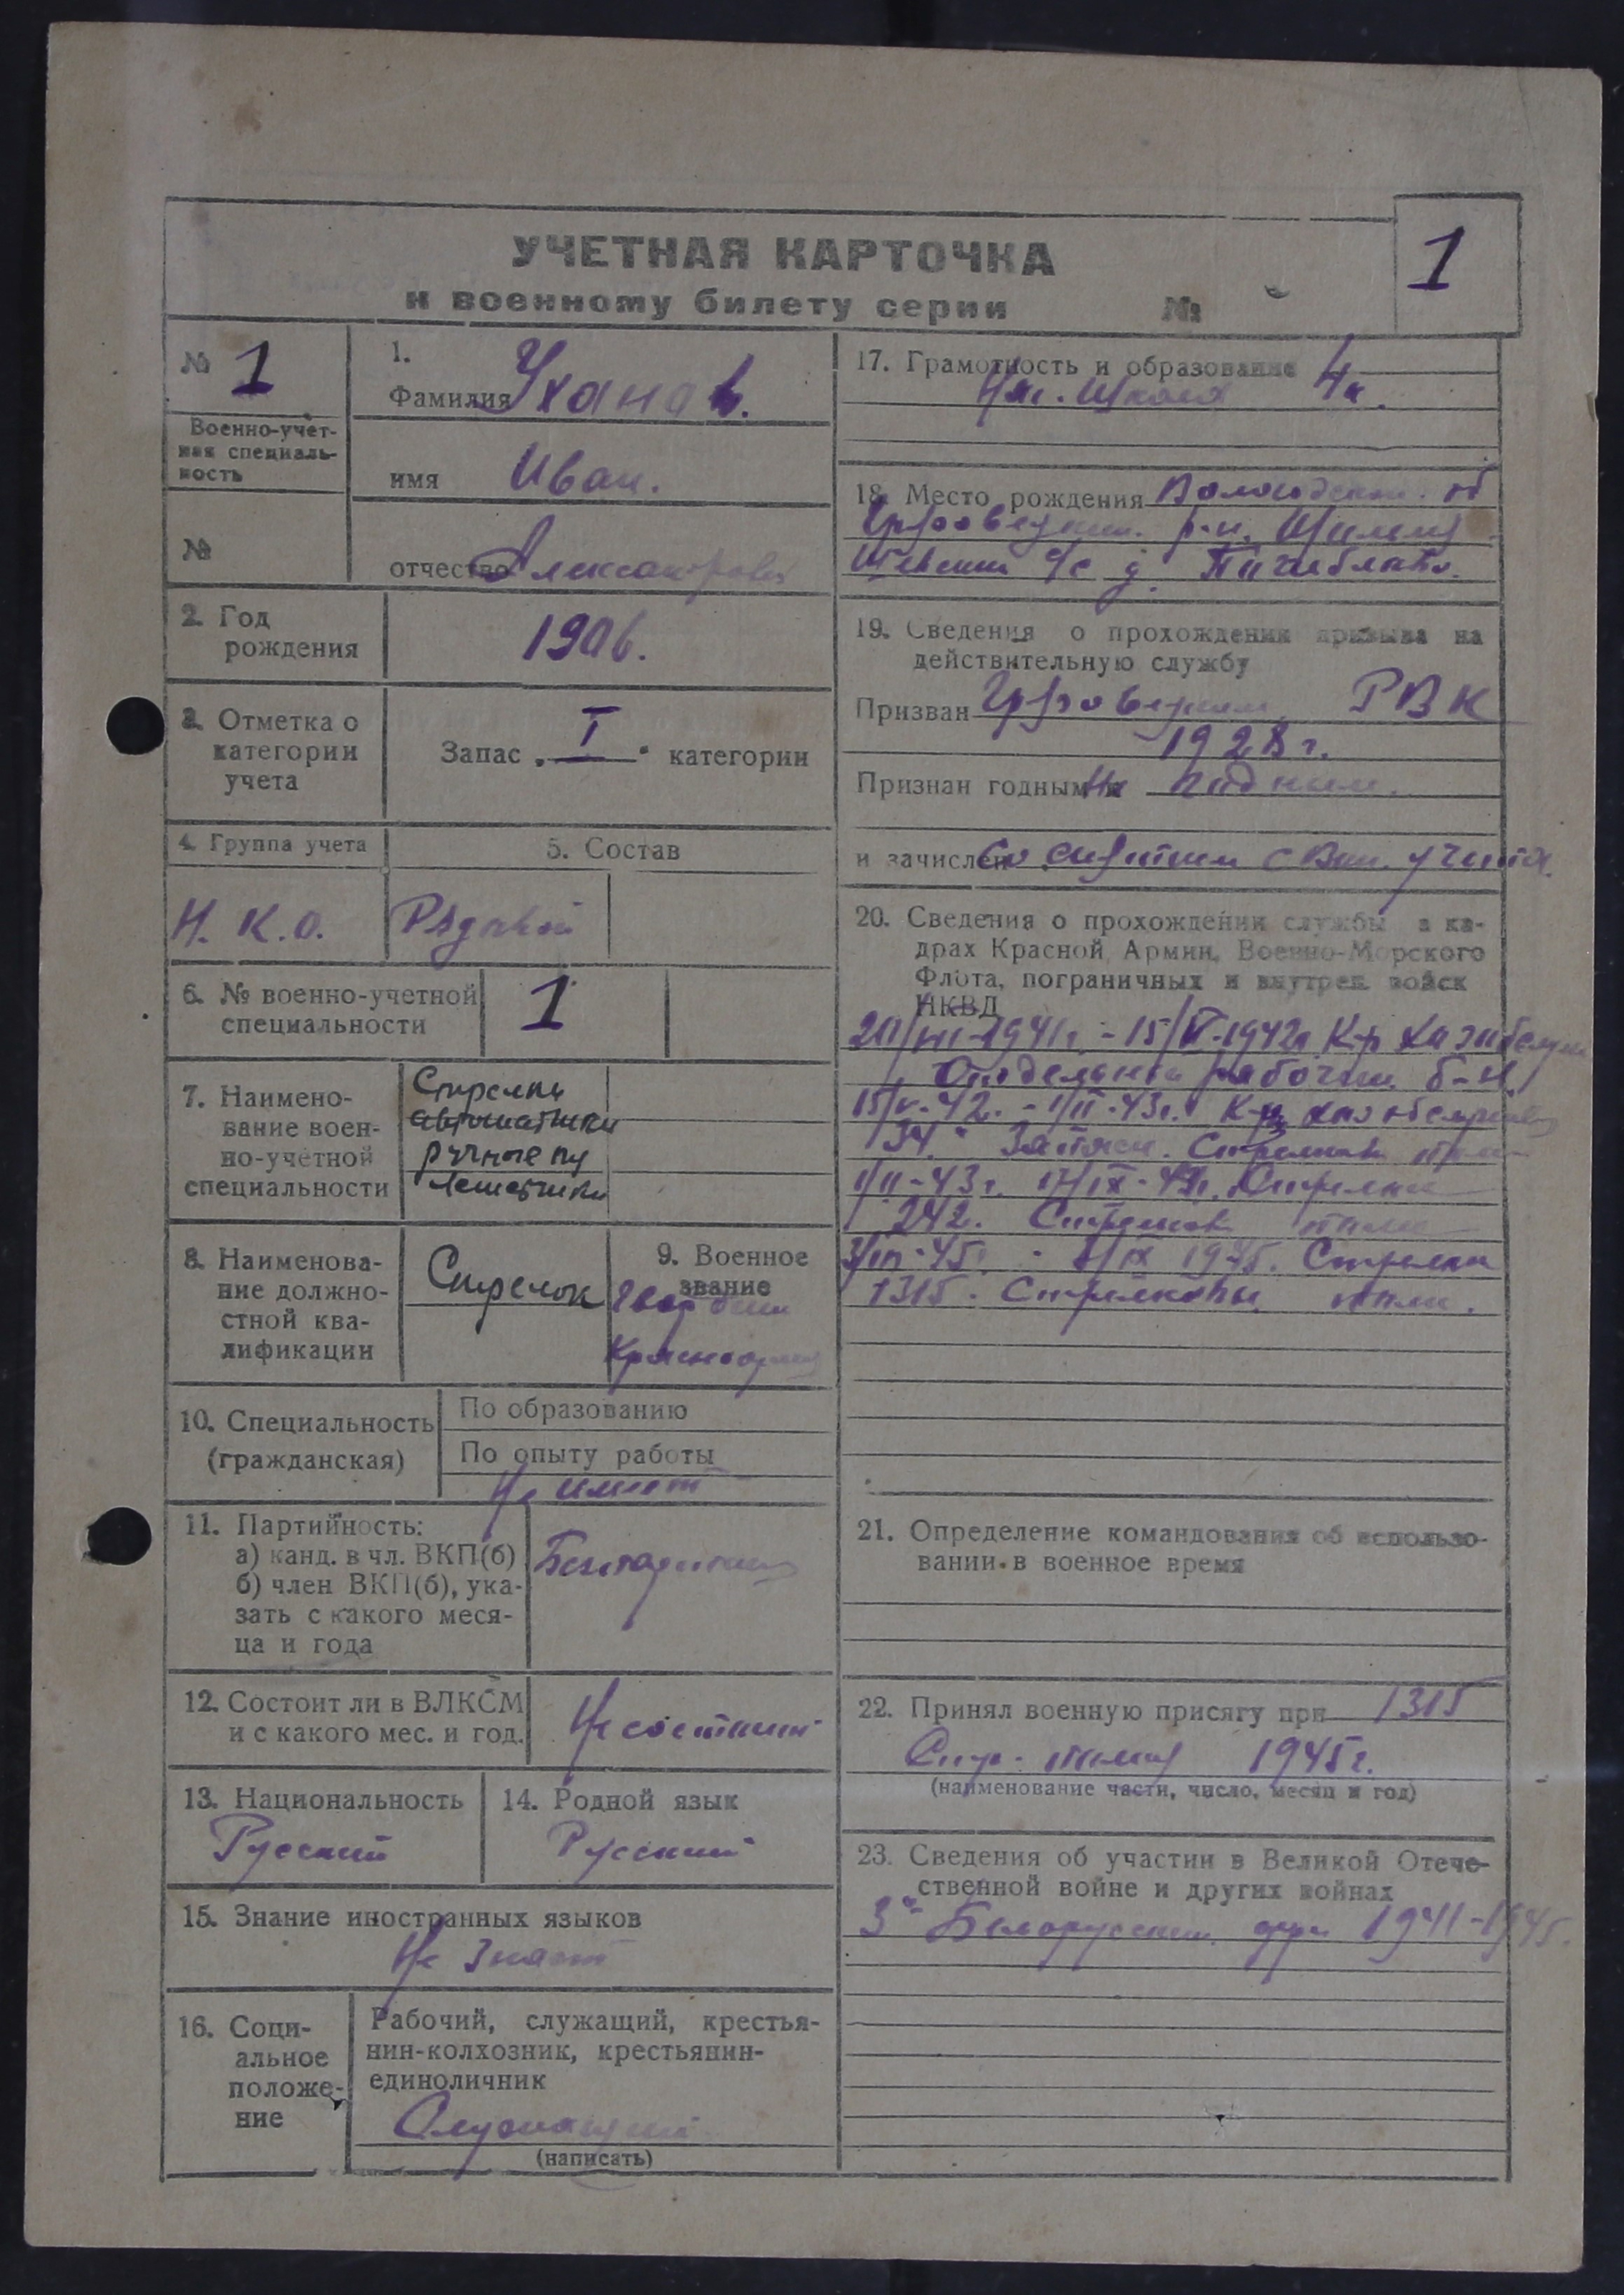 УЧЕТНАЯ КАРТОЧКА
к военному билету серии №
1
№ 1
Военно-учет-
ная специаль-
ность
№
1.
Фамилия Уханов.
имя Иван.
отчество Александрович
2. Год
рождения
1906.
3. Отметка о
категории
учета
Запас „I“ категории
4. Группа учета
5. Состав
Н. К. О.
Рядовой
6. № военно-учетной
специальности
1
7. Наимено-
вание воен-
но-учетной
специальности
Стрелки
автоматчики
ручные пу
леметчики
8. Наименова-
ние должно-
стной ква-
лификации
Стрелок
9. Военное
звание
Гвардеии
Красноарм
10. Специальность
(гражданская)
По образованию
По опыту работы
Не имеет
11. Партийность:
а) канд. в чл. ВКП(б)
б) член ВКП(б), ука-
зать с какого меся-
ца и года
12. Состоит ли в ВЛКСМ
и с какого мес. и год.
Не состоит
13. Национальность
Русский
14. Родной язык
Русский
15. Знание иностранных языков
Не знает
16. Соци-
альное
положе-
ние
Рабочий, служащий, крестья-
нин-колхозник, крестьянин-
единоличник
Служащий
(написать)
17. Грамотность и образование
Нач. школа 4 к.
18. Место рождения Вологодская об
р-н.
с/с д.
19. Сведения о прохождении призыва на
действительную службу
Призван РВК
1928 г.
Признан годным Не годным.
и зачислен со снятием с воен. учета.
20. Сведения о прохождении службы в ка-
драх Красной Армии, Военно-Морского
Флота, пограничных и внутрен. войск
НКВД
1941 г. - 1942 г К-р
рабочий б-н.
15/V-42. - 1/II-43 г.
134. Запасн. Стрелков полк
1/II-43 г. Стрелка
242. Стрелков полк
3/III-45 г. - IX 1945. Стрелка
1315. Стрелковый полк.
21. Определение командования об использо-
вании в военное время
22. Принял военную присягу при 1315
Стр. полку 1945 г.
(наименование части, число, месяц и год)
23. Сведения об участии в Великой Отече-
ственной войне и других войнах
3й Белорусский фр 1941-1945.